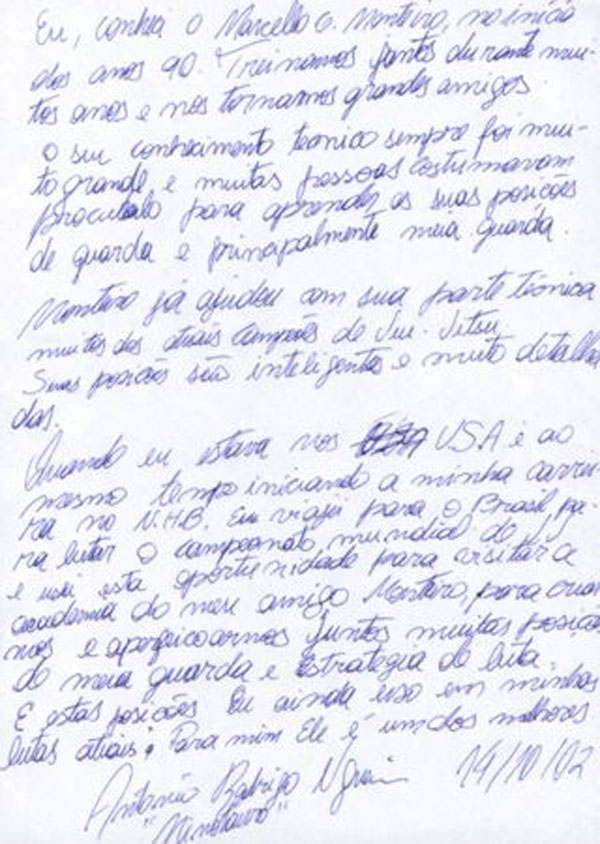 Eu, conheci o Marcello C. Monteiro, no início
dos anos 90. Treinamos juntos durante mui-
tos anos e nos tornamos grandes amigos.
O seu conhecimento tecnico sempre foi mui-
to grande, e muitas pessoas costumavam
procuralo para aprender as suas posições
de guarda e principalmente meia guarda.
Monteiro já ajudou com sua parte técnica
muitos dos atuais campeões de Jiu-Jitsu.
Suas posições são inteligentes e muito detalha
das.
Quando eu estava nos USA e ao
mesmo tempo iniciando a minha carrei-
ra no N.H.B. Eu viajei para o Brasil pa-
ra lutar o campeonato mundial de JJ
e usei esta oportunidade para visitar a
academia do meu amigo Monteiro, para
nos e aperfeicoarnos juntos muitas posiçõ
de meia guarda e Estrategia de luta.
E estas posicões Eu ainda uso em minhas
lutas atuais. Para mim Ele é um dos melhores
Antonio Rodrigo Nogueira 14/10/02
"Minotauro"